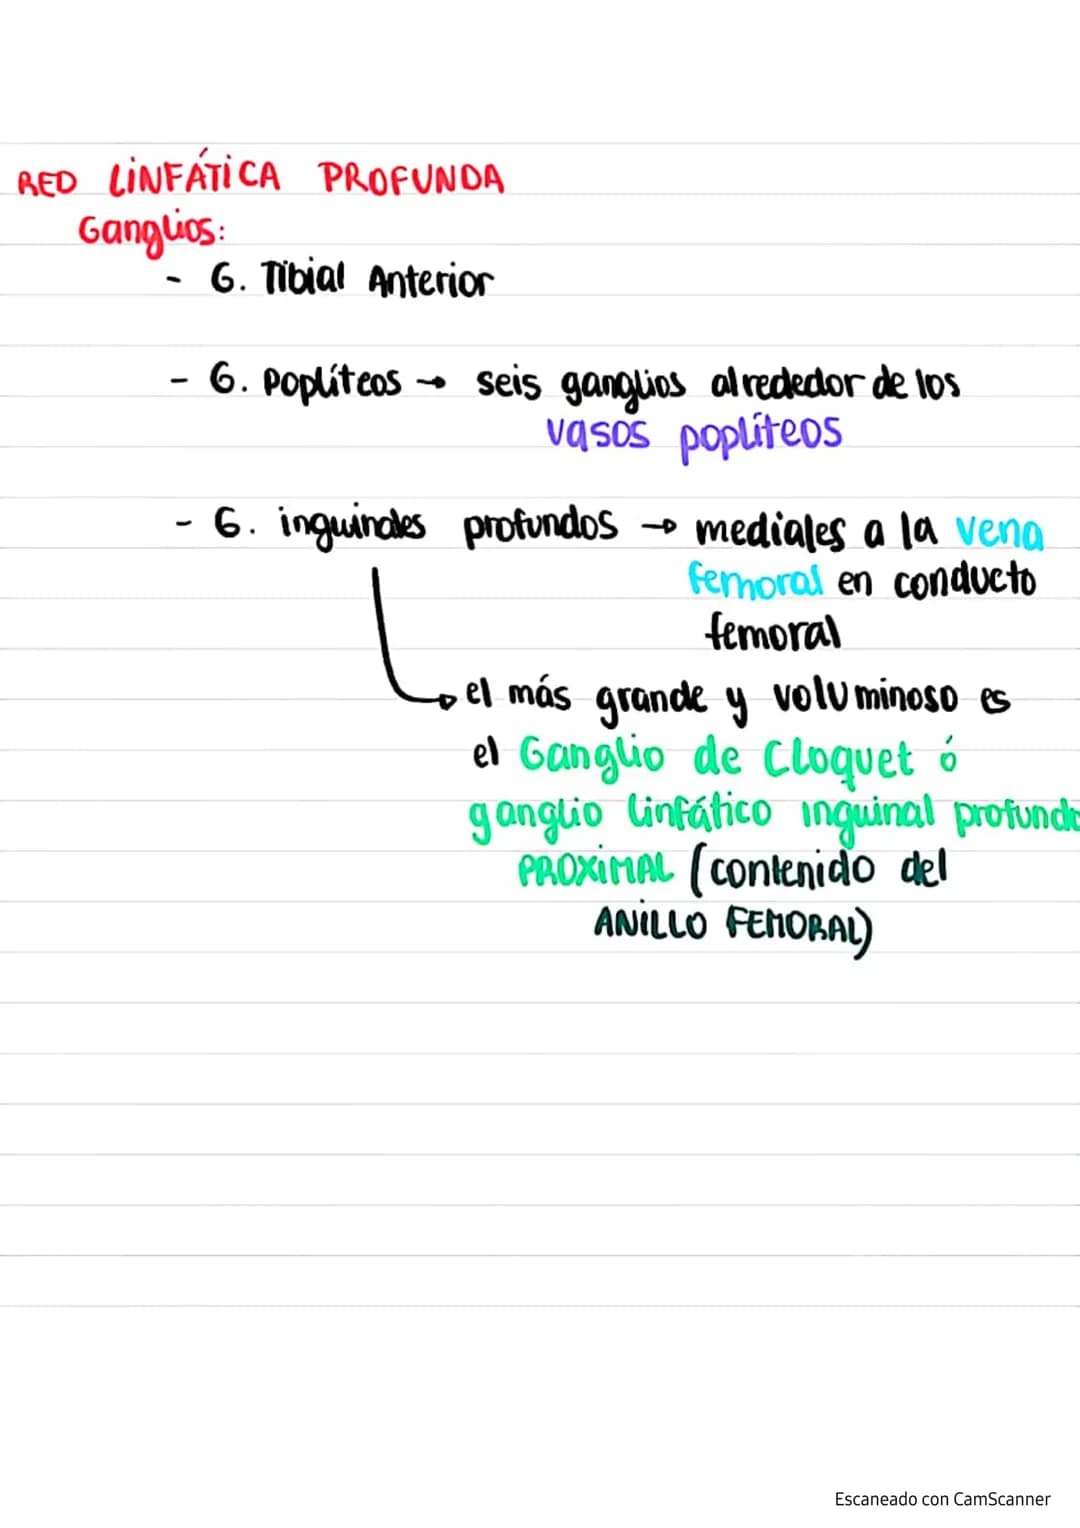 RED LINFÁTICA PROFUNDA
Ganglios:
- G. Tibial Anterior
- G. Poplíteos → seis ganglios alrededor de los
vasos poplíteos
- G. inguinales profundos → mediales a la vena
femoral en conducto
femoral
→ el más grande y voluminoso es
el Ganglio de Cloquet ó
ganglio linfático inguinal profundo
PROXIMAL (contenido del
ANILLO FEMORAL)
Escaneado con CamScanner